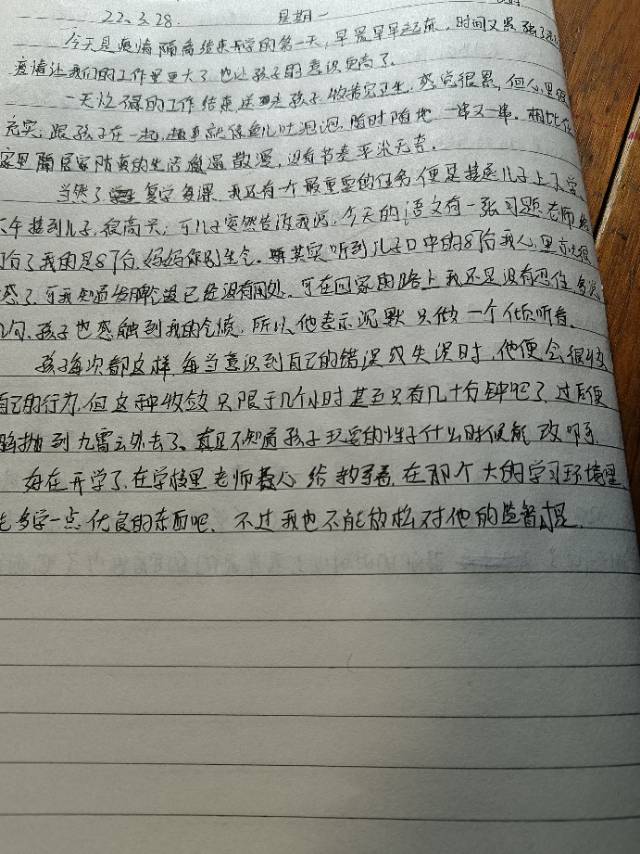 22.3.28. 星期一
今天是疫情隔离结束开学的第一天,早晨早早起床,时间又紧张了
疫情让我们的工作量更大了也让孩子的意识更高了。
一天忙碌的工作结束送走孩子,做清完卫生,感觉很累,但心里很
充实,跟孩子在一起,趣事就像鱼儿吐泡泡,随时随地一串又一串。相比在
家里隔居家防疫的生活散漫,没有节奏平淡无奇。
当然了复学复课,我还有一个最重要的任务便是接送儿子上下学,
午接到儿子,很高兴,可儿子突然告诉我说,今天的语文有一张习题老师
我的是87分,妈妈你别生气。其实听到儿子口中的87分我心里
了,可我知道发脾气已经没有用处。可在回家的路上我还是没有忍住
句,孩子也感触到我的气愤,所以他表示沉默只做一个倾听者。
孩子每次都这样,每当意识到自己的错误或失误时,他便会很快
自己的行为,但这种收敛只限于几个小时甚至只有几十分钟吧了,过后便
抛到九霄云外去了。真是不知道孩子玩耍的性子什么时候能改啊
好在开学了,在学校里老师给教导着,在那个大的学习环境里
多学一点优良的东西吧,不过我也不能放松对他的监督